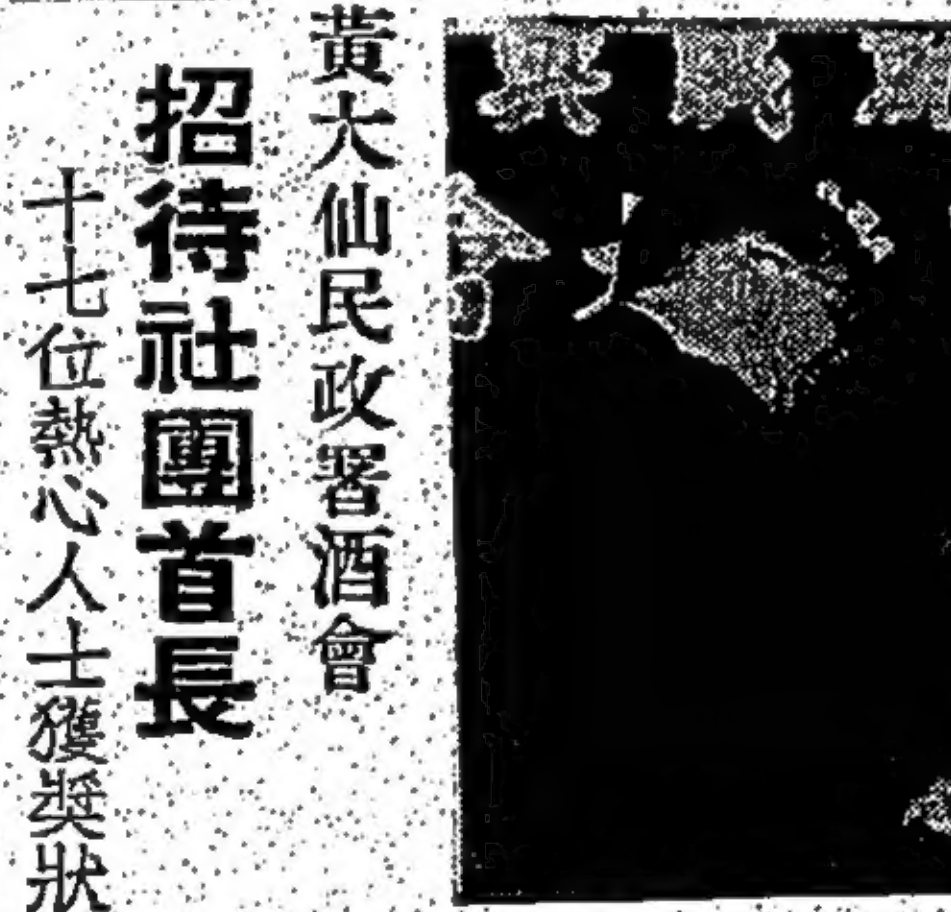 黃大仙民政署酒會
招待社團首長
十七位熱心人士獲獎狀